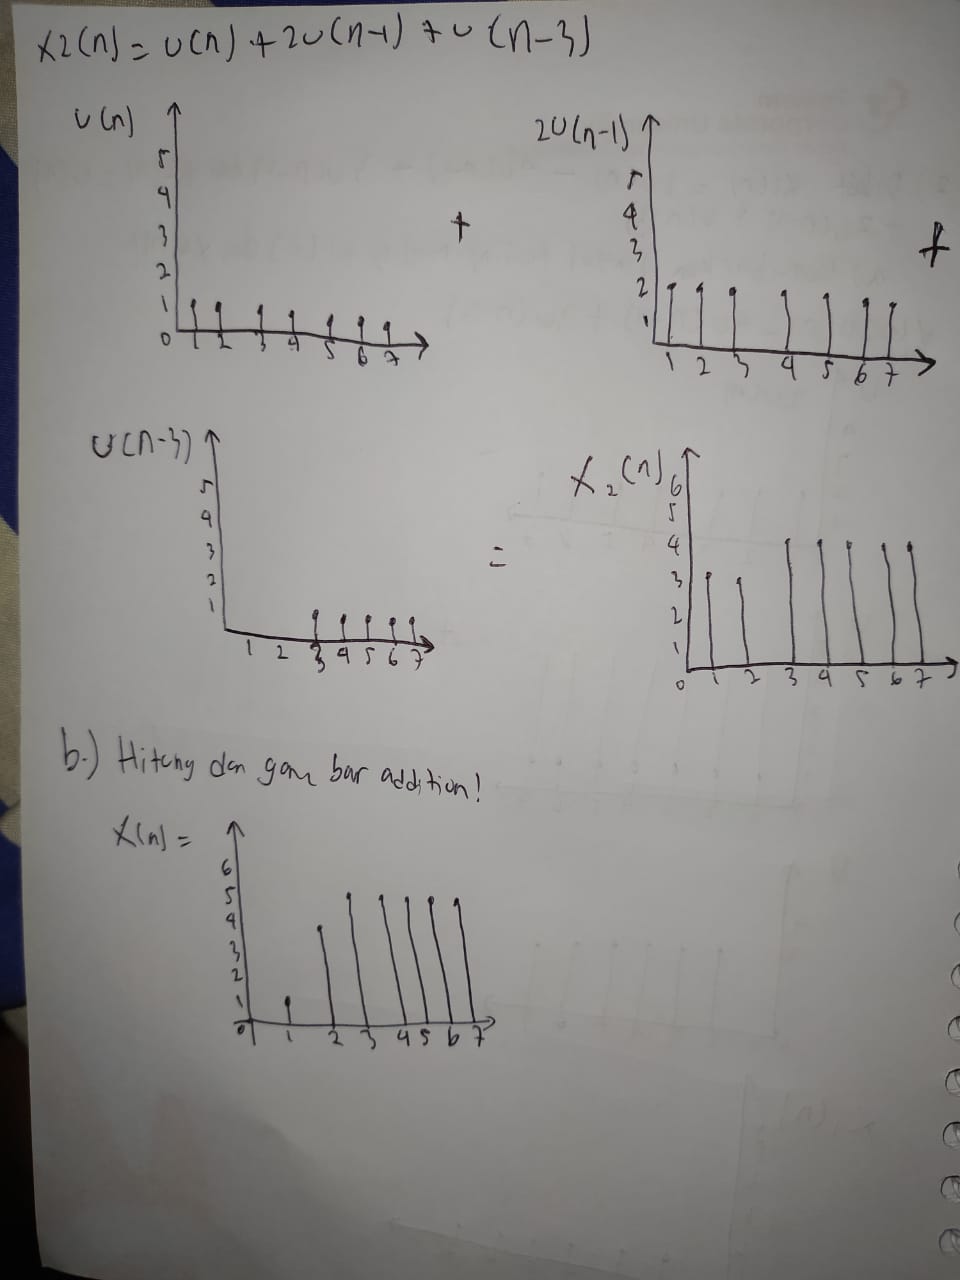 X2(n) = u(n) + 2u(n-1) + u(n-3)
u(n)
5
4
3
2
1
0 1 2 3 4 5 6 7
+
2u(n-1)
5
4
3
2
1
1 2 3 4 5 6 7
+
u(n-3)
5
4
3
2
1
1 2 3 4 5 6 7
=
X₂(n)
6
5
4
3
2
1
0 1 2 3 4 5 6 7
b.) Hitung dan gam bar addition!
X(n) =
6
5
4
3
2
1
0 1 2 3 4 5 6 7